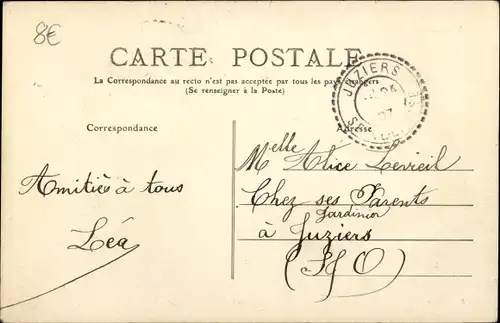 8€
CARTE POSTALE
La Correspondance au recto n'est pas acceptée par tous les pays étrangers
(Se renseigner à la Poste)
JUZIERS
07
Correspondance
Adresse
Amitiés à tous
Léa
Melle Alice Levreil
Chez ses Parents
Jardinier
à Juziers
(S/O)